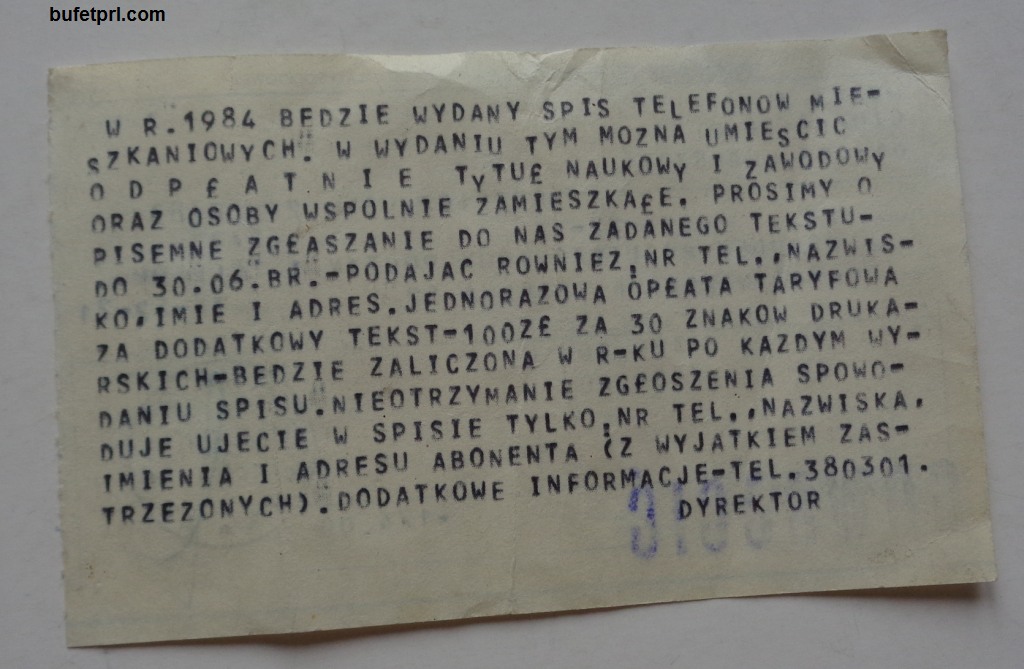 bufetprl.com
W R.1984 BEDZIE WYDANY SPIS TELEFONOW MIE-
SZKANIOWYCH. W WYDANIU TYM MOZNA UMIESCIC
O D P Ł A T N I E TYTUŁ NAUKOWY I ZAWODOWY
ORAZ OSOBY WSPOLNIE ZAMIESZKAŁE. PROSIMY O
PISEMNE ZGŁASZANIE DO NAS ZADANEGO TEKSTU-
DO 30.06.BR.-PODAJAC ROWNIEZ,NR TEL.,NAZWIS-
KO,IMIE I ADRES.JEDNORAZOWA OPŁATA TARYFOWA
ZA DODATKOWY TEKST-100ZŁ ZA 30 ZNAKOW DRUKA-
RSKICH-BEDZIE ZALICZONA W R-KU PO KAZDYM WY-
DANIU SPISU.NIEOTRZYMANIE ZGŁOSZENIA SPOWO-
DUJE UJECIE W SPISIE TYLKO,NR TEL.,NAZWISKA,
IMIENIA I ADRESU ABONENTA (Z WYJATKIEM ZAS-
TRZEZONYCH).DODATKOWE INFORMACJE-TEL.380301.
DYREKTOR